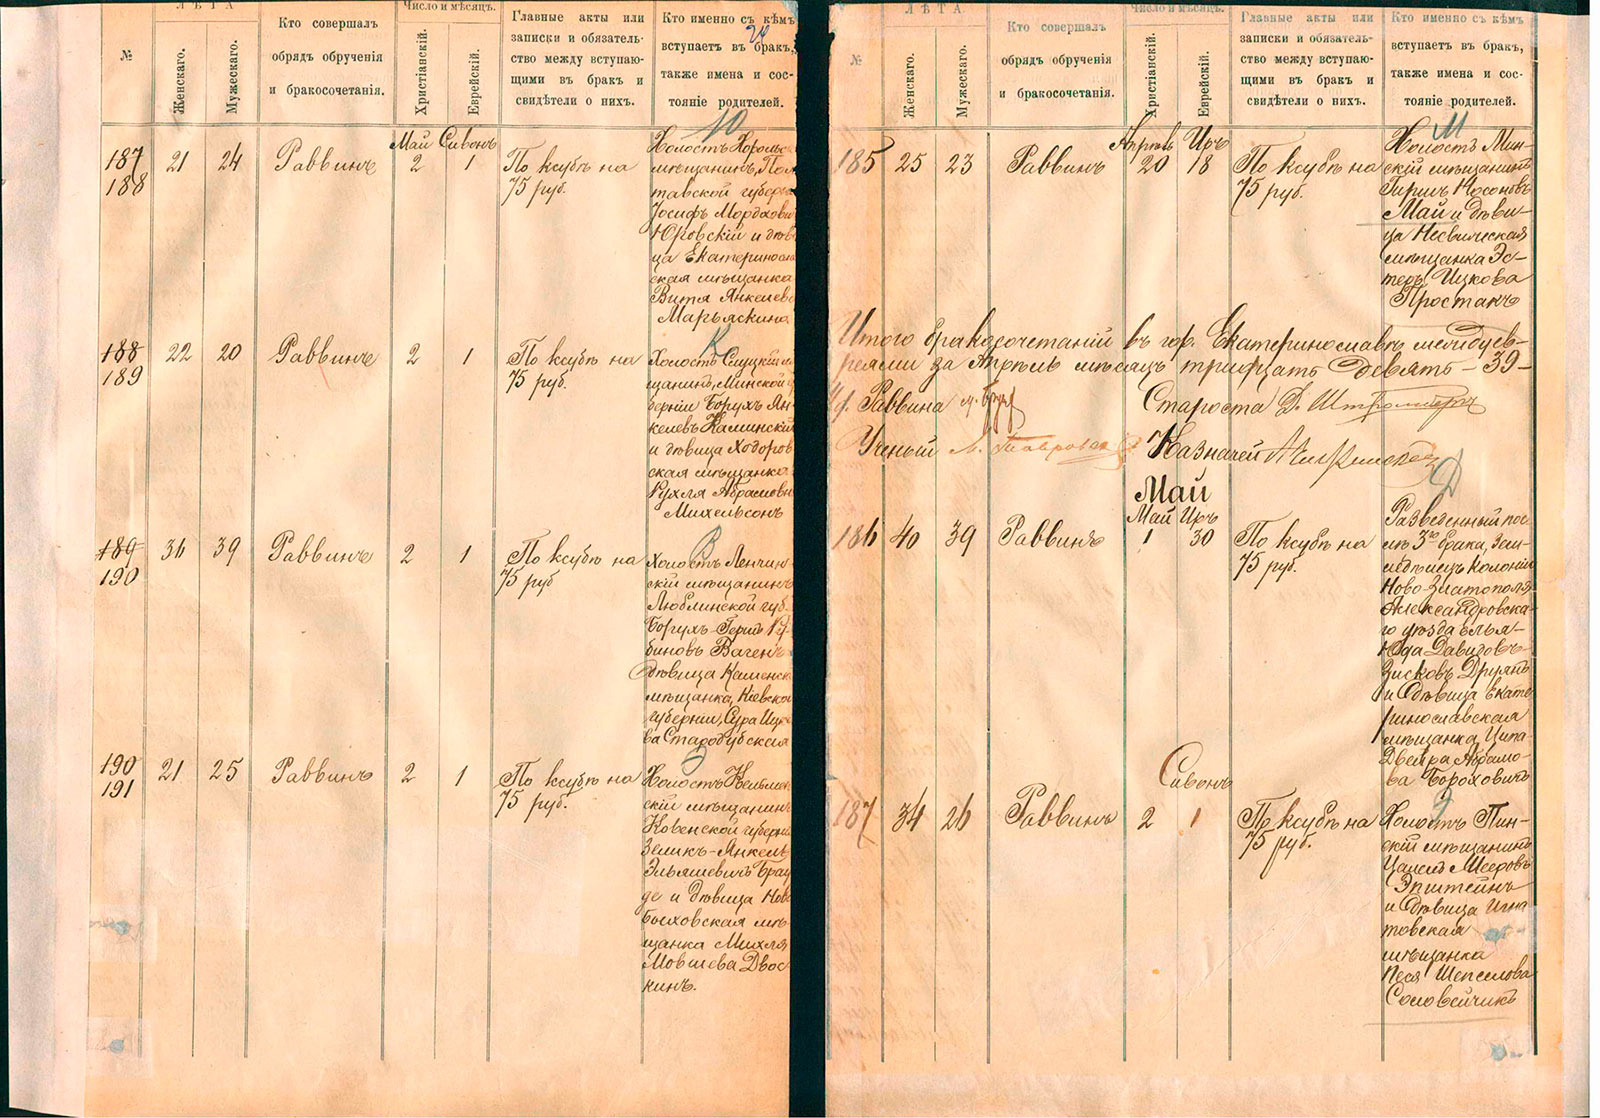 №
ЛѢТА
Женскаго.
Мужескаго.
Кто совершалъ
обрядъ обрученія
и бракосочетанія.
Число и мѣсяцъ.
Христіанскій.
Еврейскій.
Главные акты или
записки и обязатель-
ство между вступаю-
щими въ бракъ и
свидѣтели о нихъ.
Кто именно съ кѣмъ
вступаетъ въ бракъ,
также имена и сос-
тояніе родителей.
Ю
187
188
21
24
Раввинъ
Май Сивонъ
2
1
По ксубѣ на
75 руб.
Холостъ Хорольс
мѣщанинъ, Пол
тавской губерн
Іосифъ Мордхович
Юровскій и дѣви
ца Екатериносла
ская мѣщанка
Витя Янкелева
Марьяскина
К
188
189
22
20
Раввинъ
2
1
По ксубѣ на
75 руб.
Холостъ Слуцкій м
щанинъ, Минской г
берніи Борухъ Ян-
келевъ Каминскій
и дѣвица Ходоров
ская мѣщанка
Рухля Абрамовн
Михельсонъ
В
189
190
36
39
Раввинъ
2
1
По ксубѣ на
75 руб
Холостъ Ленчин
скій мѣщанинъ
Люблинской губ-
Борухъ-Гершъ Ру-
биновъ Вагенъ
дѣвица Каменск
мѣщанка, Кіевской
губерніи, Сура Ицко
ва Стародубская
190
191
21
25
Раввинъ
2
1
По ксубѣ на
75 руб.
Холостъ Кельмен
скій мѣщанинъ
Ковенской губерн
Зеликъ-Янкель
Эльяшевичъ Брау
де и дѣвица Ново
Быховская мѣ-
щанка Михля
Мовшева Двос
кинъ.
№
ЛѢТА
Женскаго.
Мужескаго.
Кто совершалъ
обрядъ обрученія
и бракосочетанія.
Число и мѣсяцъ.
Христіанскій.
Еврейскій.
Главные акты или
записки и обязатель-
ство между вступаю-
щими въ бракъ и
свидѣтели о нихъ.
Кто именно съ кѣмъ
вступаетъ въ бракъ,
также имена и сос-
тояніе родителей.
М
185
25
23
Раввинъ
Апрѣль Иръ
20
18
По ксубѣ на
75 руб.
Холостъ Мин-
скій мѣщанинъ
Гиршъ Носоновъ
Май и дѣви-
ца Несвижская
мѣщанка Эс-
теръ Ицкова
Простакъ
Итого бракосочетаній въ гор. Екатеринославѣ между ев-
реями за Апрѣль мѣсяцъ тридцать девять - 39 -
Раввина
Староста Д. Штромберъ
Ученый
Казначей
Май
Май Иръ
Д
186
40
39
Раввинъ
1
30
По ксубѣ на
75 руб.
Разведенный пос-
лѣ 3го брака, Зем-
ледѣлецъ Колоніи
Ново-Златополя
Александровска-
го уѣзда Элья-
Юда Давидовъ-
Зисковъ Друянъ
и дѣвица Екате
ринославская
мѣщанка, Ципа-
Двейра Абрамо-
ва Бороховичъ
Сивонъ
Э
187
34
26
Раввинъ
2
1
По ксубѣ на
75 руб.
Холостъ Пин-
скій мѣщанинъ
Мееровъ
Эпштейнъ
и дѣвица Игна
товская
мѣщанка
Песя Шепселова
Соловейчикъ